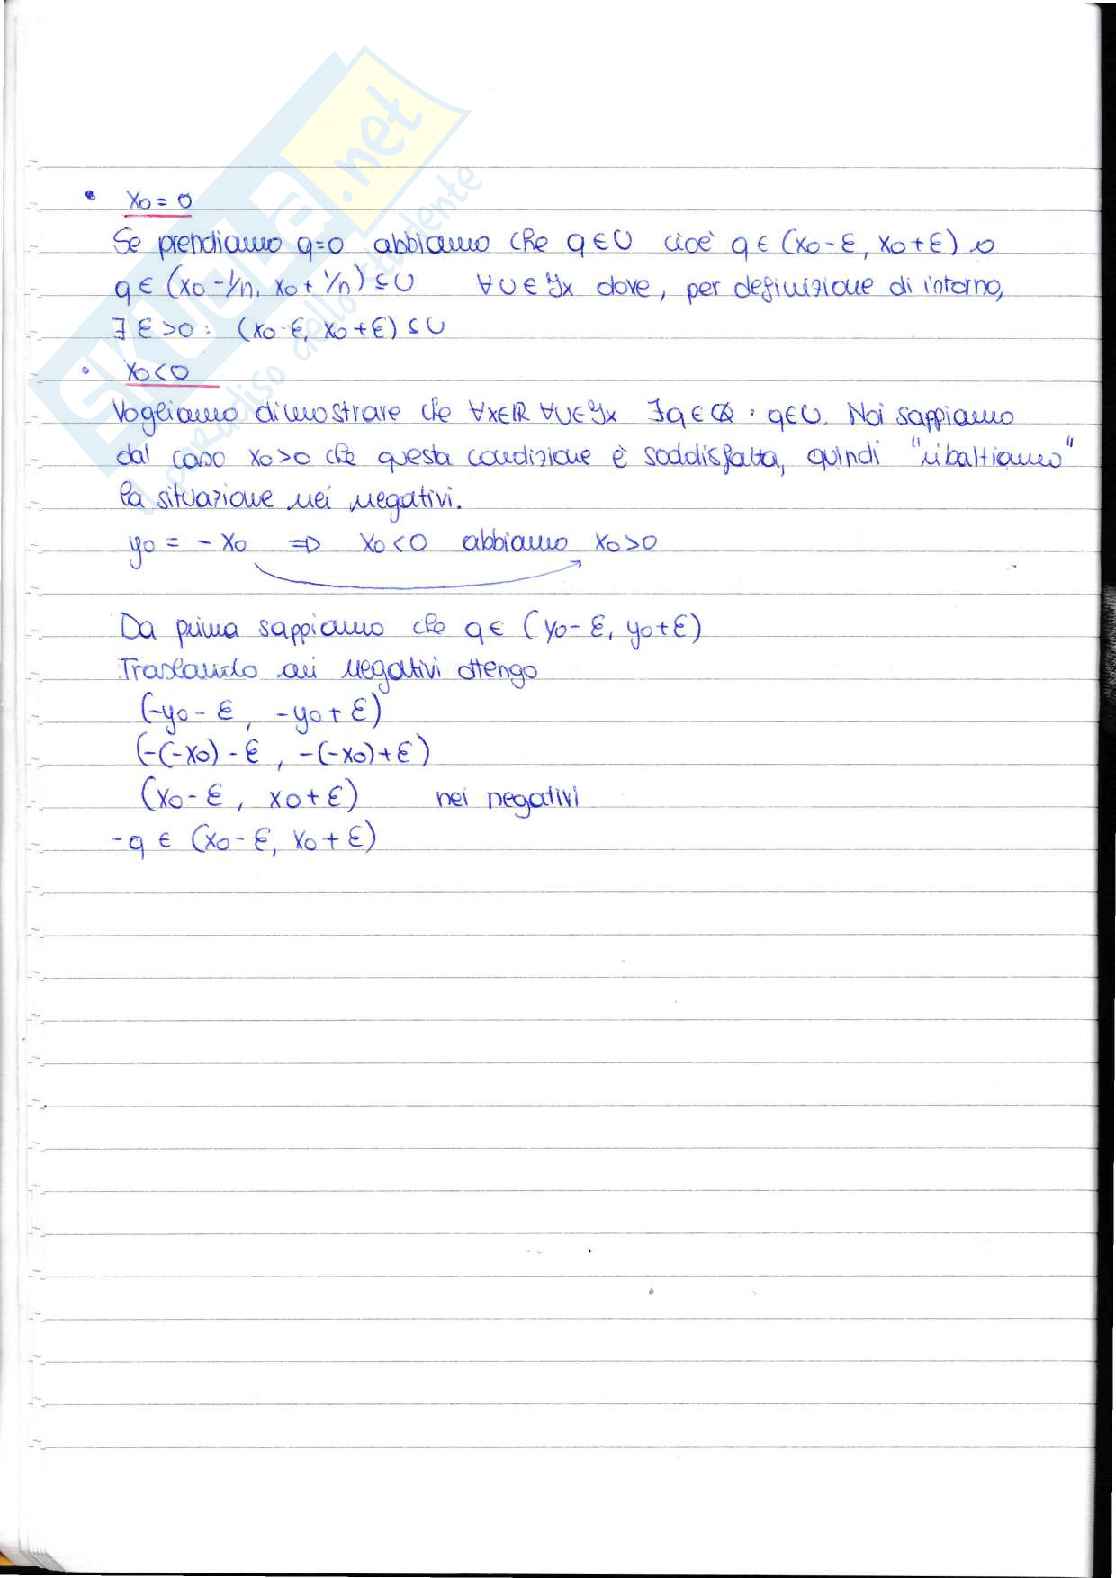 SKUOLA.net
il paradiso dello studente
• x₀ = 0
Se prendiamo q=0 abbiamo che q∈U cioè q∈(x₀-ε, x₀+ε) o
q∈(x₀-1/n, x₀+1/n)⊆U ∀U∈𝒥x dove, per definizione di intorno,
∃ε>0: (x₀-ε, x₀+ε)⊆U
• x₀<0
Vogliamo dimostrare che ∀x∈ℝ ∀U∈𝒥x ∃q∈ℚ : q∈U. Noi sappiamo
dal caso x₀>0 che questa condizione è soddisfatta, quindi "ribaltiamo"
la situazione nei negativi.
y₀ = -x₀ ⇒ x₀<0 abbiamo x₀>0
Da prima sappiamo che q∈(y₀-ε, y₀+ε)
Traslando ai negativi ottengo
(-y₀-ε, -y₀+ε)
(-(-x₀)-ε, -(-x₀)+ε)
(x₀-ε, x₀+ε) nei negativi
-q ∈ (x₀-ε, x₀+ε)